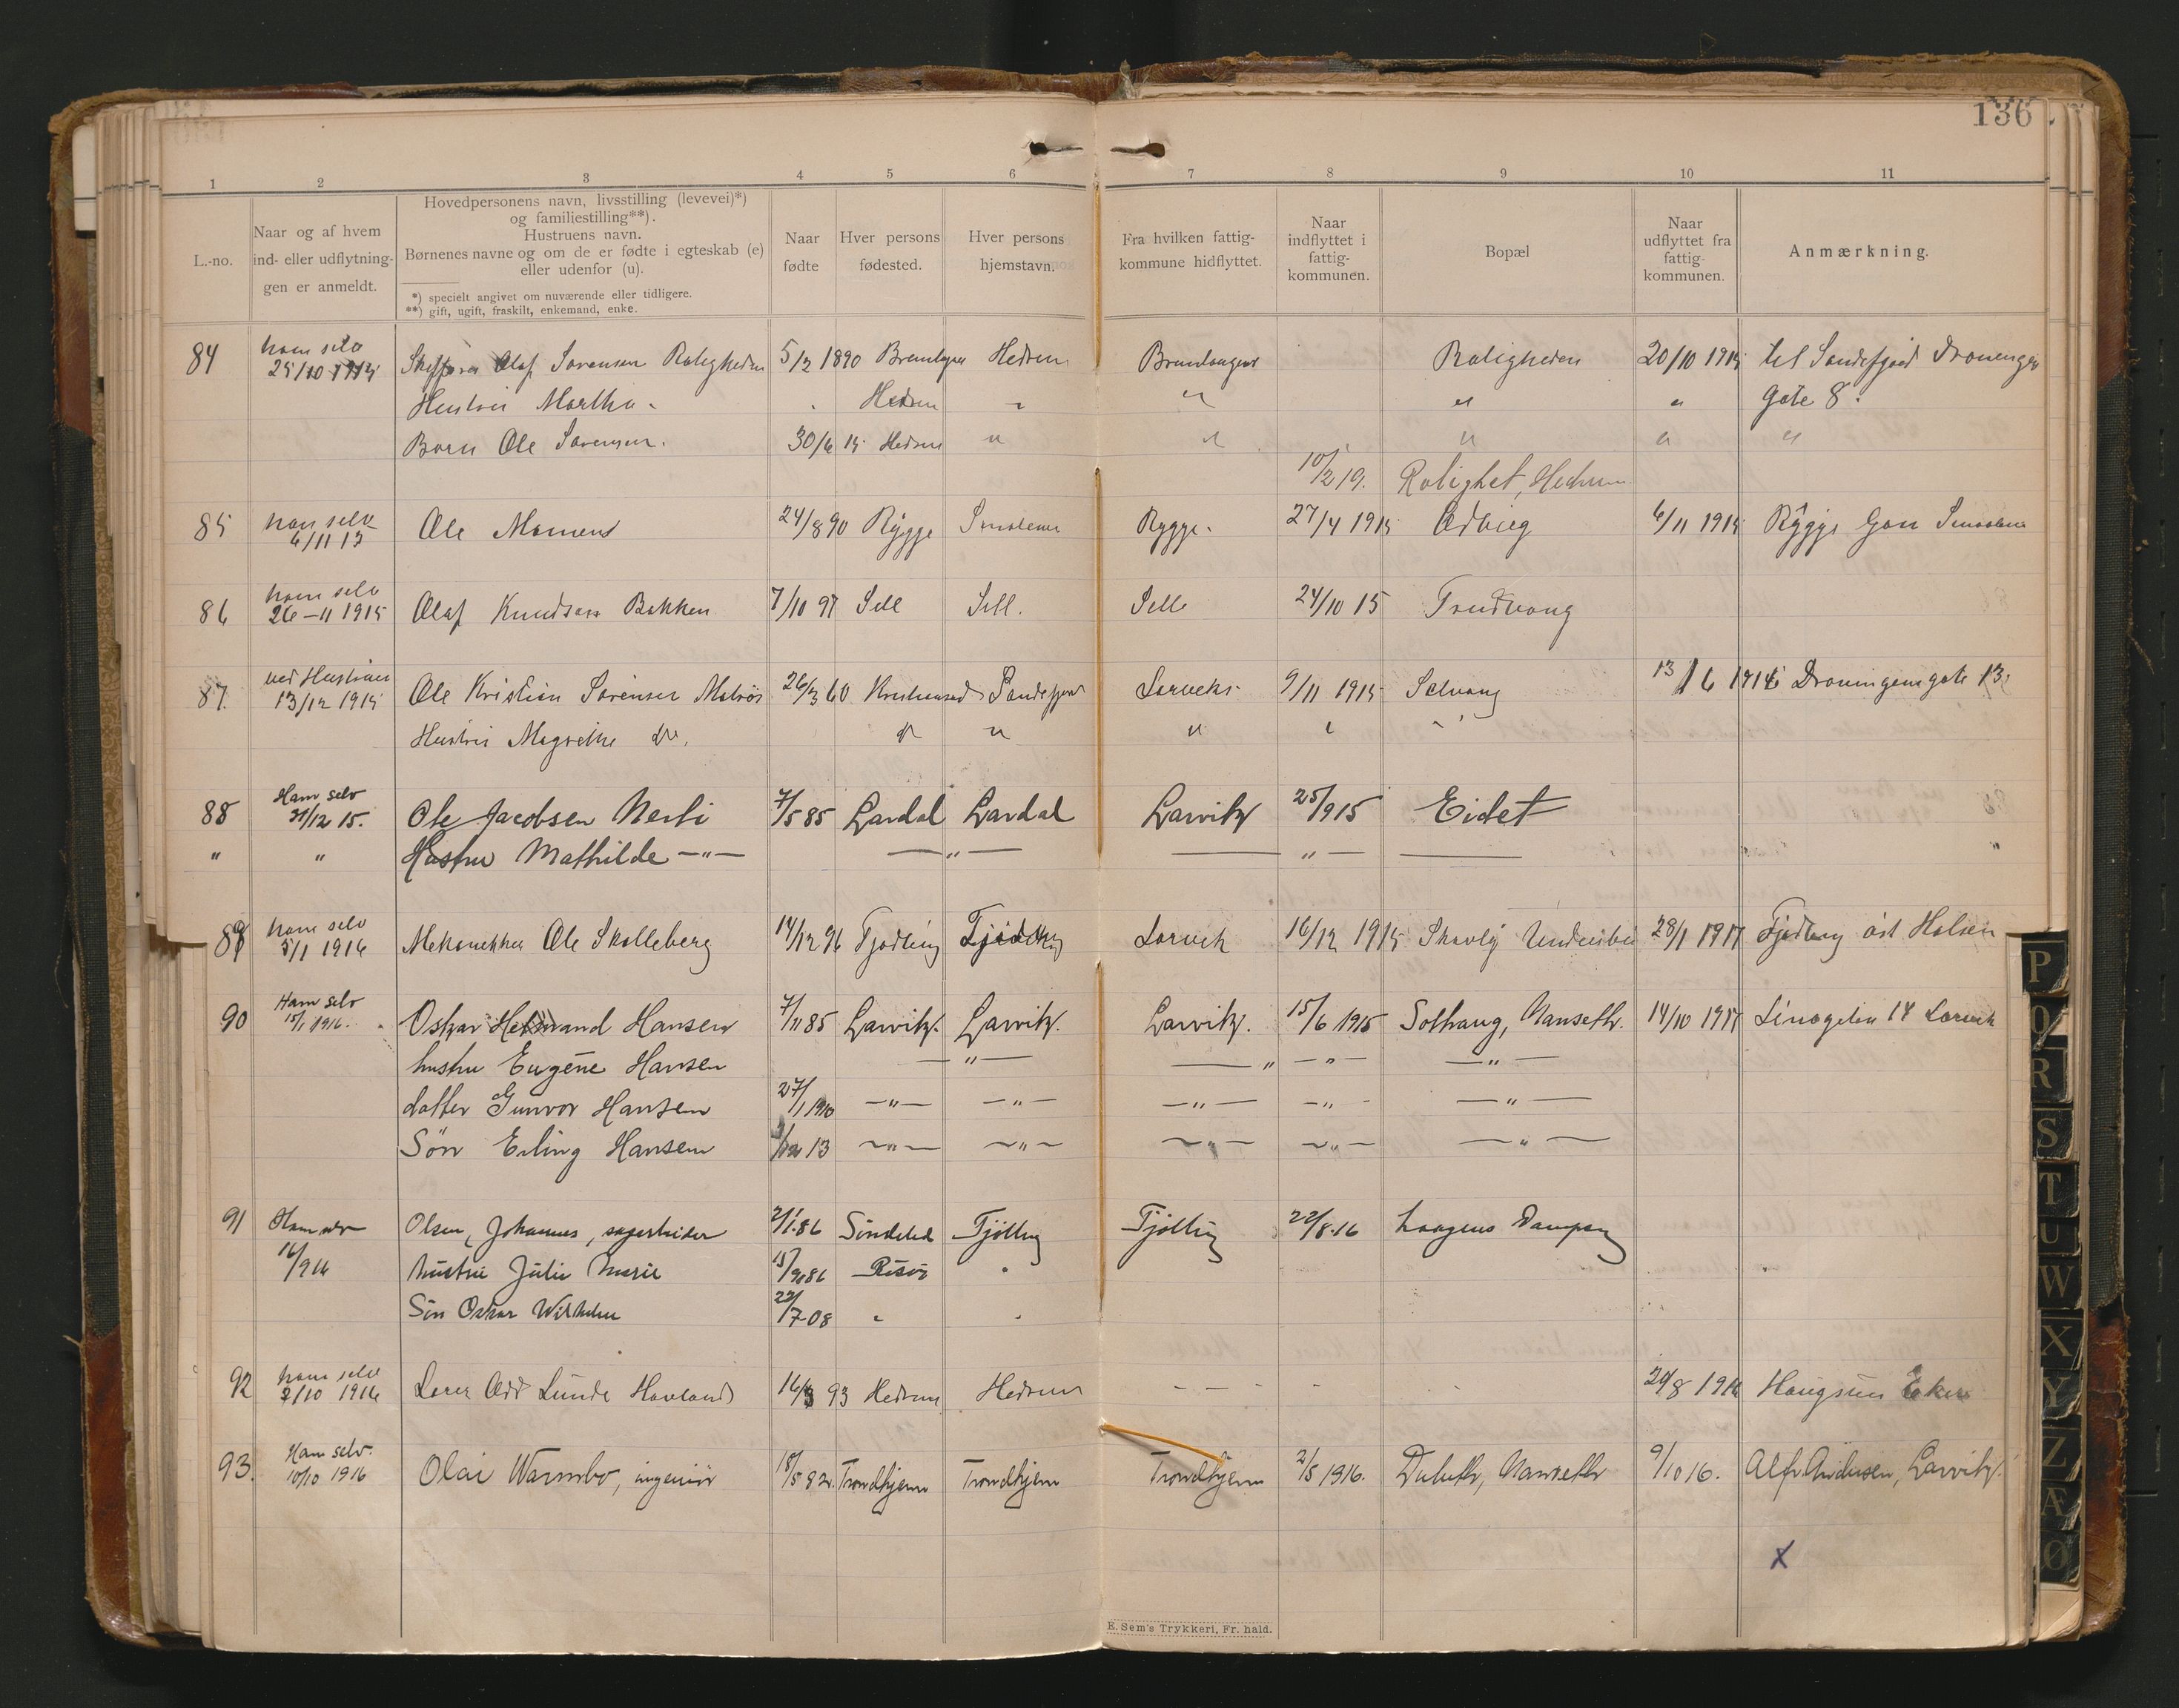 136.
1 2 3 4 5 6 7 8 9 10 11
L.-no.
Naar og af hvem
ind- eller udflytning-
gen er anmeldt.
Hovedpersonens navn, livsstilling (levevei)*)
og familiestilling**).
Hustruens navn.
Børnenes navne og om de er fødte i egteskab (e)
eller udenfor (u).
*) specielt angivet om nuværende eller tidligere.
**) gift, ugift, fraskilt, enkemand, enke.
Naar
fødte
Hver persons
fødested.
Hver persons
hjemstavn.
Fra hvilken fattig-
kommune hidflyttet.
Naar
indflyttet i
fattig-
kommunen.
Bopæl
Naar
udflyttet fra
fattig-
kommunen.
Anmærkning.
84 ham selv
25/10 1915 Olaf Sørensen Roligheden 5/2 1890 Hedrum Roligheden 20/10 1915 til Sandefjord Dronengs
Hustru Martha " Hedrum " " " " gate 8.
Barn Ole Sørensen. 30/6 15 Hedrum " " " " "
10/2 19. Rolighet, Hedrum
85 ham selv
6/11 15 Ole Momens 24/8 90 Rygge Smaalene Rygge. 27/4 1915 6/11 1915 Rygge Smaalene
86 ham selv
26-11 1915 Olaf Knudsen Bakken 7/10 97 Sell Sell. Sell 24/10 15 Trudvang
87. ved Hustruen
13/12 1915 Ole Kristian Sørensen Matros 26/3 60 Sandefjord 9/11 1915 Solvang 13/6 1916 Droningensgate 13.
Hustru Magrethe do. " " " " "
88 Ham selv
31/12 15. Ole Jacobsen Nerli 7/5 85 Lardal Lardal Larvik 25/9 15 Eidet
" " Hustru Mathilde —"— —"— —"—
89 ham selv
5/1 1916 Ole Skalleberg 14/12 96 Tjødling Tjødling Larvik 16/12 1915 28/1 1917 Tjødling
90 Ham selv
15/1 1916. Oskar Hermand Hansen 7/11 85 Larvik. Larvik. Larvik. 15/6 1915 Solhaug, Nanseth. 14/10 1917 14 Larvik
hustru Eugene Hansen —"— —"— —"— —"—
datter Gunvor Hansen 27/1 1910 —"— —"— —"— —"— —"—
Søn Erling Hansen 13 —"— —"— —"— —"— —"—
91 Ham selv Olsen, Johannes, sagarbeider 2/1.86 Søndeled Tjølling Tjølling 22/8.16 Laagens Dampsag
16/9 16 hustru Julie Marie 15/9 86 Risør "
Søn Oskar Wilhelm 22/7-08 " "
92 ham selv
2/10 1916 Lærer Odd Lunde Havland 16/3 93 Hedrum Hedrum - - - - - 29/8 1916 Haugsun Eker
93. Ham selv.
10/10 1916 Olai Warmbo, ingeniør 18/5 82. Trondhjem Trondhjem Trondhjem 2/5 1916. Duluth, Nanseth 9/10 16. Alf. Andersen, Larvik.
X
E. Sem's Trykkeri, Fr.hald.
P
Q
R
S
T
U
W
X
Y
Z
Æ
Ø